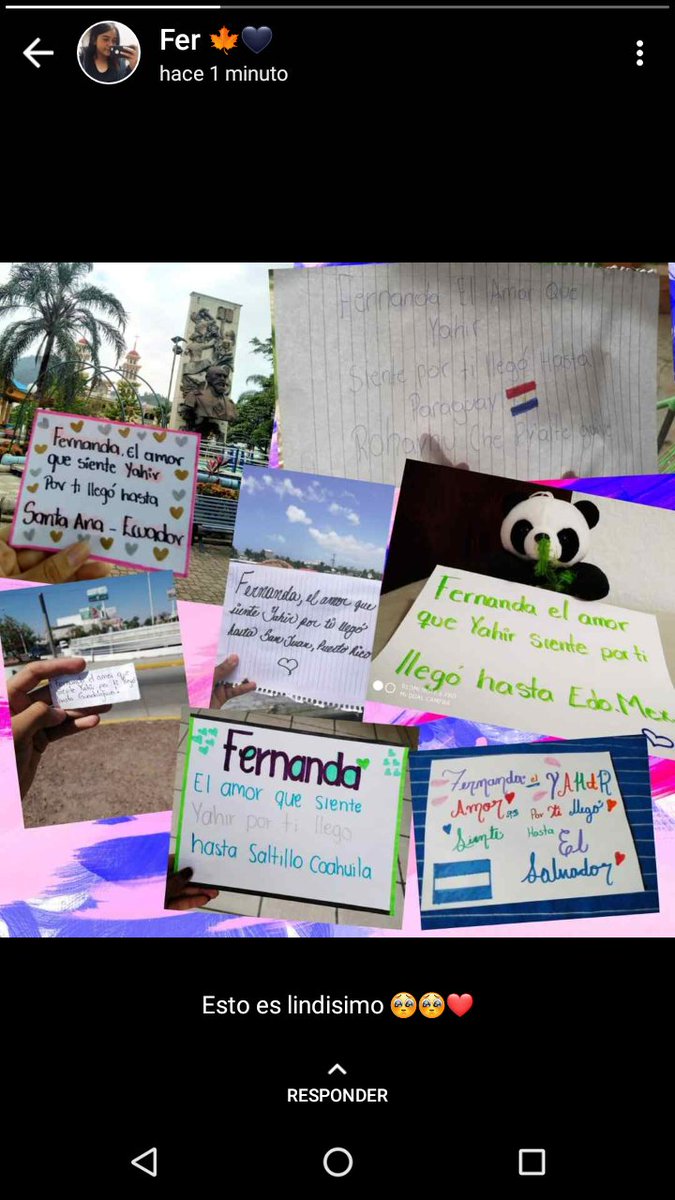 Fer 🍁🖤
hace 1 minuto
Fernanda, el amor
que siente Yahir
Por ti llegó hasta
Santa Ana - Ecuador
Fernanda El Amor Que
Yahir
Siente por ti llegó Hasta
Paraguay
Rohayhu Che
Fernanda, el amor que
siente Yahir por ti llegó
hasta San Juan, Puerto Rico
Fernanda el amor
que Yahir siente por ti
llegó hasta Edo. Mex
REDMI NOTE 8 PRO
AI QUAD CAMERA
Fernanda el amor que
siente Yahir por ti llegó
hasta Guadalajara
Fernanda
El amor que siente
Yahir por ti llego
hasta Saltillo Coahuila
Fernanda: el YAHIR
Amor Por Ti llegó
Siente Hasta El
Salvador
Esto es lindisimo 🥺🥺❤️
RESPONDER